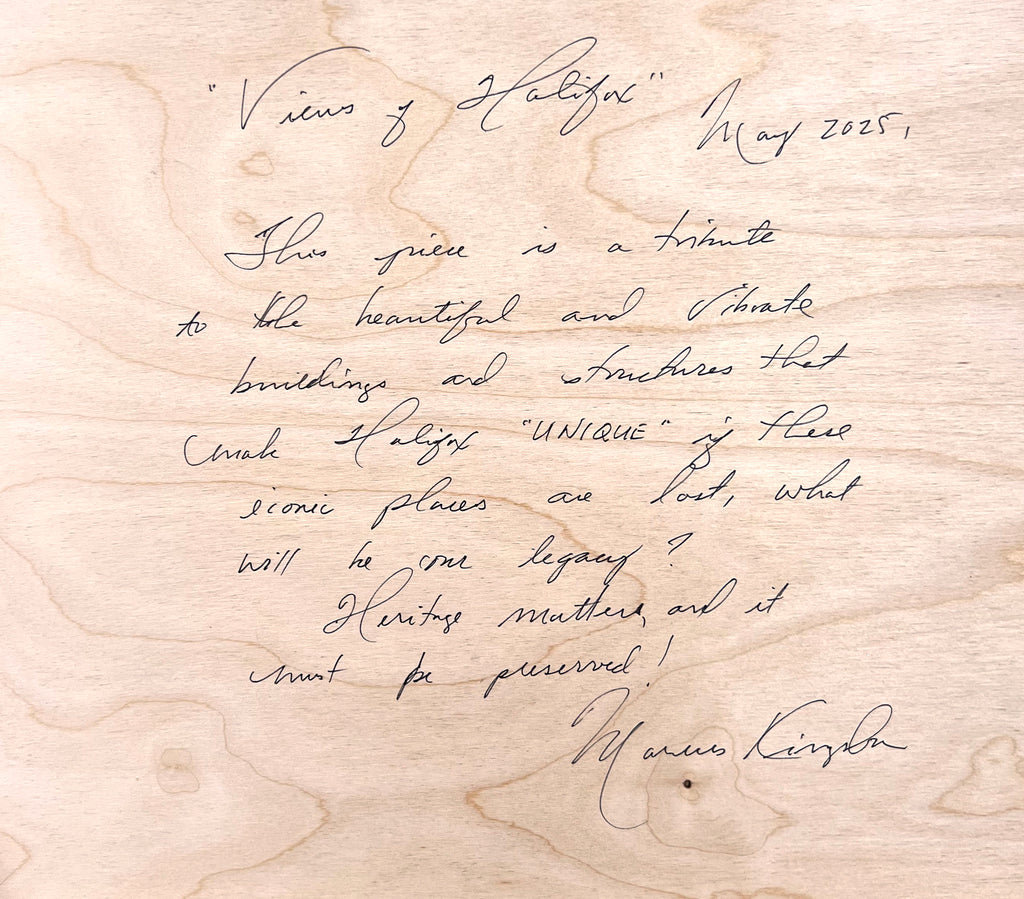 "Views of Halifax"
May 2025,
This piece is a tribute
to the beautiful and vibrate
buildings and structures that
make Halifax "UNIQUE" if these
iconic places are lost, what
will be our legacy?
Heritage matters, and it
must be preserved!
Marcus Kingston